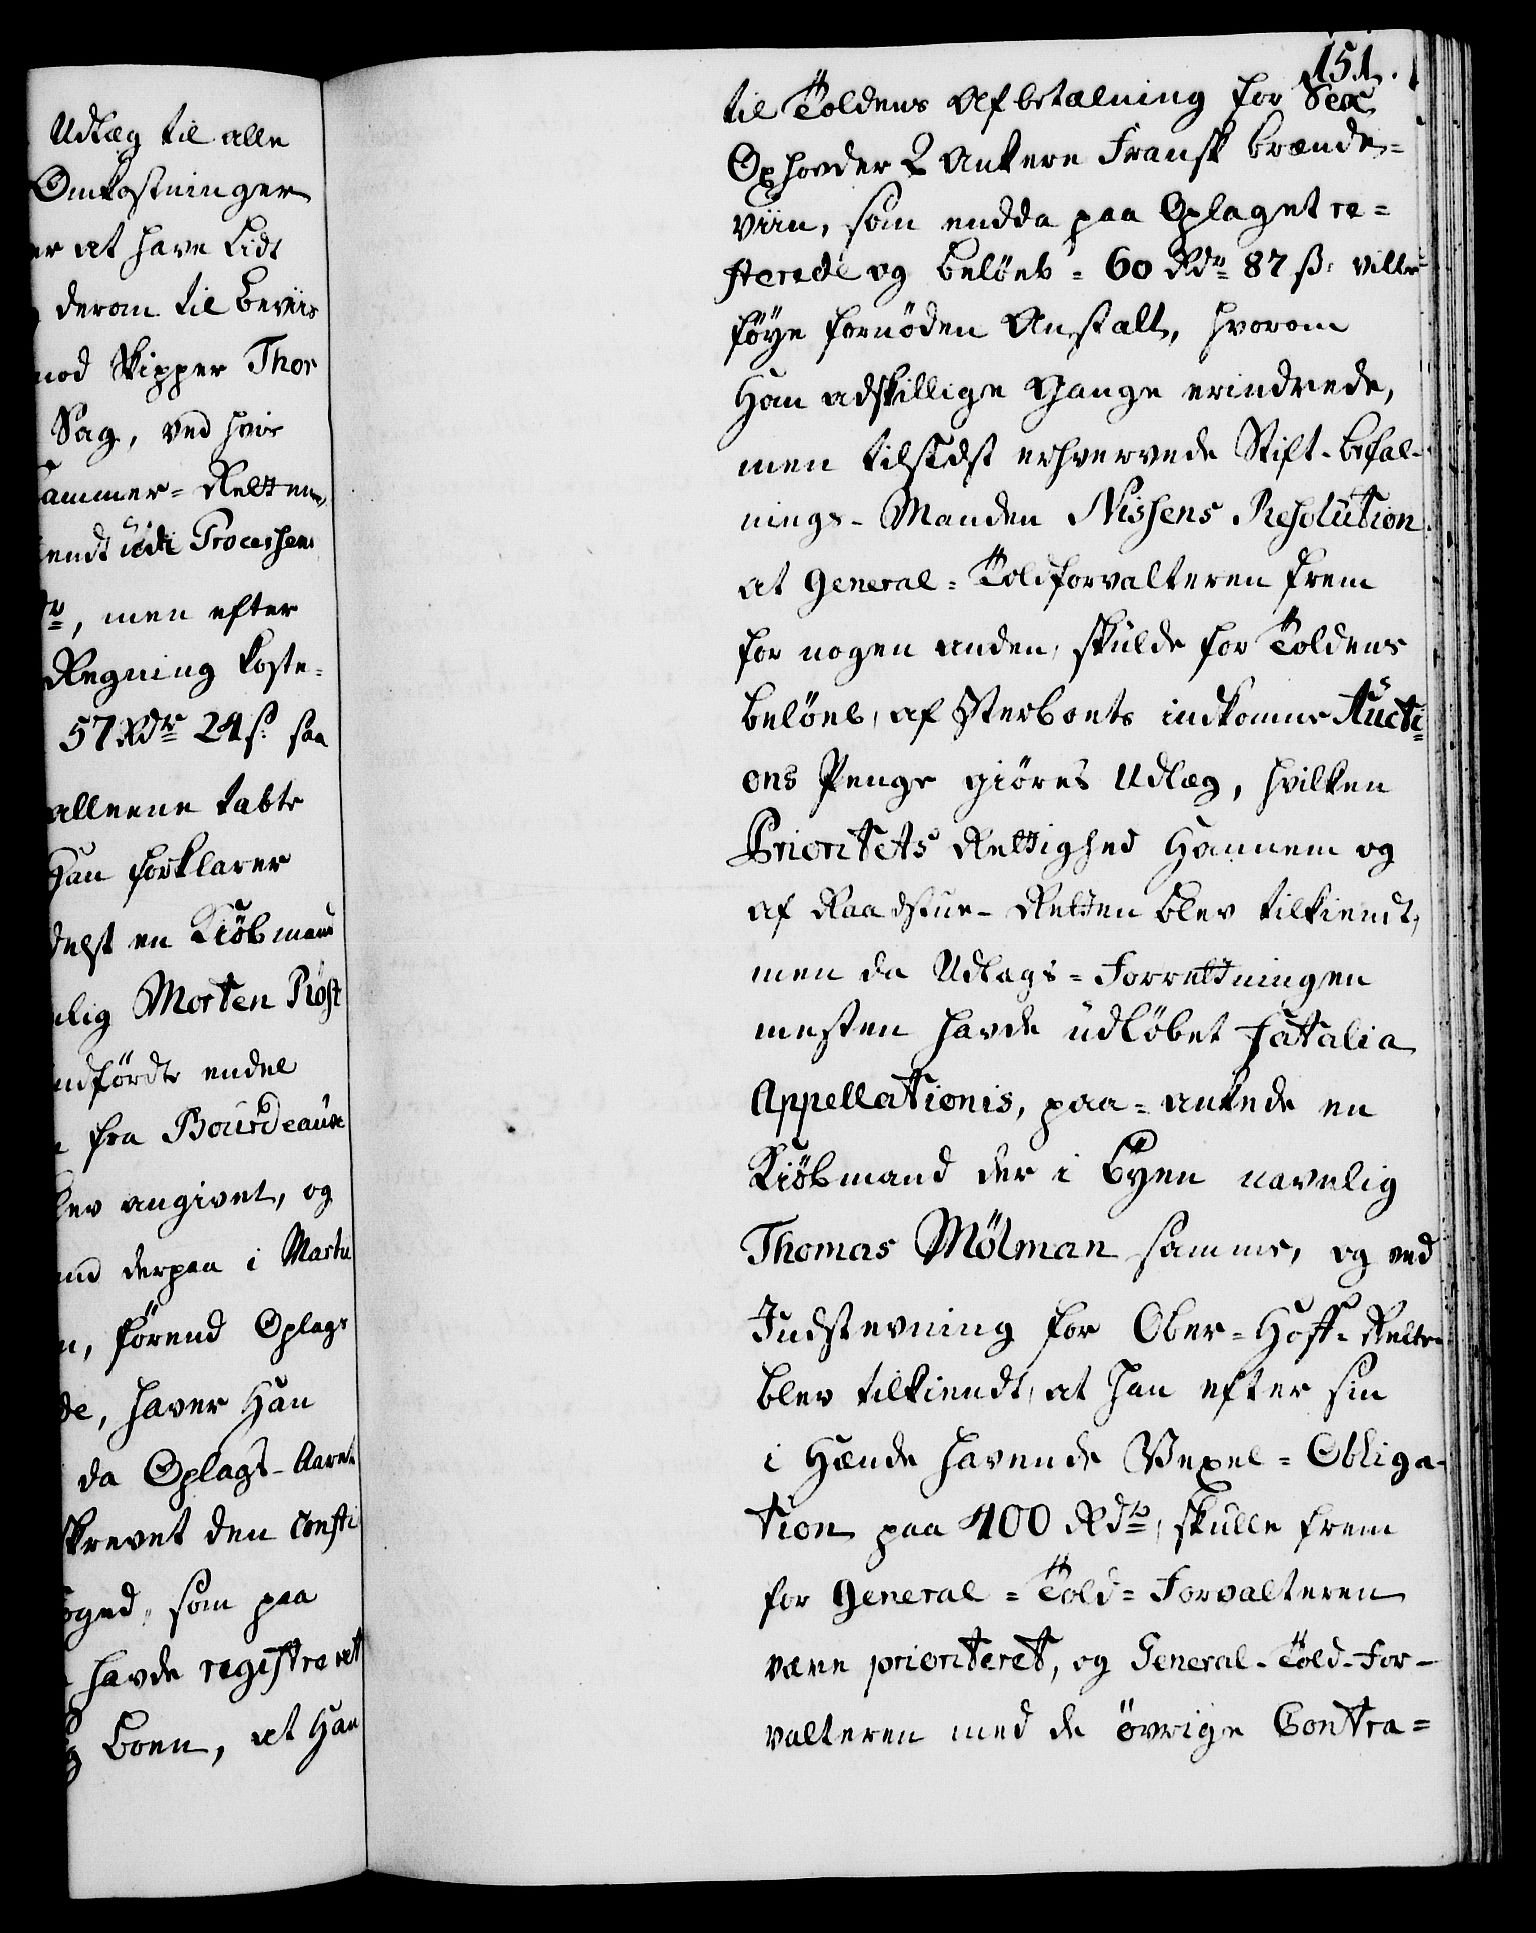 Udlæg til alle
Omkostninger
er at have Lidt
derom til Beviis
mod Skipper Thor
Sag, ved hvis
Cammer-Rettens
kiendt udi Processens
, men efter
Regning koste-
57 Rdr 24 s. saa
alleene tabte
Han forklarer
delst en Kiöbmand
nlig Morten Röst
indfördte endel
fra Bourdeaux
blev angivet, og
derpaa i Martii
n, förend Oplags
de, haver Han
da Oplags-Aaret
skrevet den Consti
foged, som paa
havde registreret
Boen, at Han
151.
til Toldens Afbetalning for Sex
Oxhovder 2 Ankere Fransk Brænde-
viin, som endda paa Oplaget re-
sterede og belöeb = 60 Rdr 87 ß. ville
föye fornöden Anstalt, hvorom
Han adskillige Gange erindrede,
men tilsidst erhvervede Stift-Befal-
nings-Manden Nissens Resolution
at General-Toldforvalteren frem
for nogen anden, skulde for Toldens
belöeb, af Sterboets indkomne Aucti-
ons Penge giöres Udlæg, hvilken
Prioritets Rettighed Hannem og
af Raadstue-Retten blev tilkiendt,
men da Udlags-Forrettningen
mesten havde udlöbet Fatalia
Appellationis, paa-ankede en
Kiöbmand der i Byen navnlig
Thomas Mölman samme, og ved
Indstevning for Ober-Hoff-Retten
blev tilkiendt, at han efter sin
i Hænde havende Vexel-Obliga-
tion paa 400 Rdr, skulle frem
for General-Told-Forvalteren
være prioriteret, og General-Told-For-
valteren med de övrige Contra-